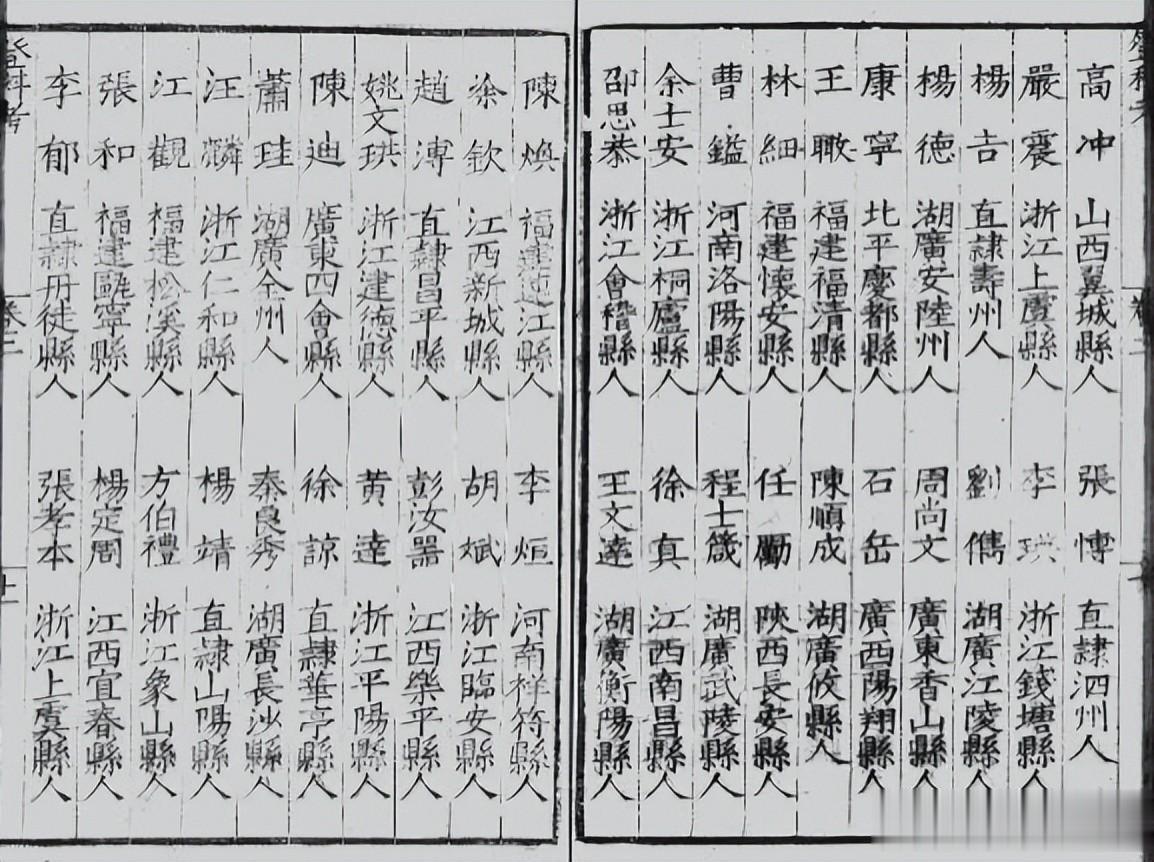 高冲 山西翼城縣人 張博 直隸泗州人
嚴震 浙江上虞縣人 李珙 浙江錢塘縣人
楊吉 直隸壽州人 劉儁 湖廣江陵縣人
楊德 湖廣安陸州人 周尚文 廣東香山縣人
康寧 北平慶都縣人 石岳 廣西陽翔縣人
王瞰 福建福清縣人 陳順成 湖廣攸縣人
林細 福建懷安縣人 任勵 陝西長安縣人
曹鎰 河南洛陽縣人 程士箴 湖廣武陵縣人
余士安 浙江桐廬縣人 徐真 江西南昌縣人
邵思恭 浙江會稽縣人 王文達 湖廣衡陽縣人
陳煥 福建連江縣人 李烜 河南祥符縣人
涂欽 江西新城縣人 胡斌 浙江臨安縣人
趙溥 直隸昌平縣人 彭汝器 江西樂平縣人
姚文珙 浙江建德縣人 黃達 浙江平陽縣人
陳迪 廣東四會縣人 徐諒 直隸華亭縣人
蕭珪 湖廣全州人 秦良秀 湖廣長沙縣人
汪麟 浙江仁和縣人 楊靖 直隸山陽縣人
江觀 福建松溪縣人 方伯禮 浙江象山縣人
張和 福建甌寧縣人 楊定周 江西宜春縣人
李郁 直隸丹徒縣人 張孝本 浙江上虞縣人
登科考 卷二